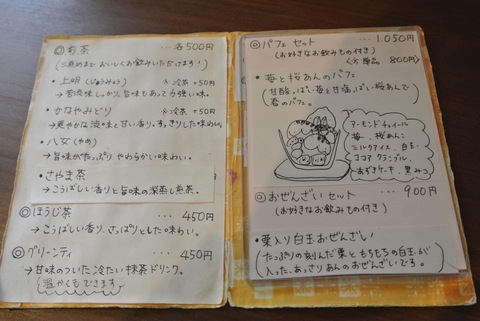 ◎お茶 ・・・各500円
(三煎めまで おいしくお飲みいただけます!)
・上明(じょうみょう) ※冷茶+50円
→香涼味しっかり、旨味もあって力強い味。
・かなやみどり ※冷茶+50円
→爽やかな渋味と甘い香り。すっきりした味わい。
・八女(やめ)
→旨味がたっぷり やわらかい味わい。
・さやま茶
→こうばしい香りと旨味の深蒸し煎茶。
◎ほうじ茶 ・・・450円
→こうばしい香り、さっぱりとした味わい。
◎グリーンティ ・・・450円
→甘味のついた冷たい抹茶ドリンク。
温かくもできます
◎パフェ セット ・・・1,050円
(お好きなお飲みもの付き) 〈※単品 800円〉
・苺と桜あんのパフェ
(甘酸っぱい苺と甘塩っぱい桜あんで
春のパフェ。)
アーモンドチュイール
苺、桜あんこ
ミルクアイス、白玉
ココアクランブル、
あずきケーキ、黒みつ
◎おぜんざいセット ・・・900円
(お好きなお飲みもの付き)
・栗入り白玉おぜんざい
(たっぷりの刻んだ栗ともちもちの白玉が
入った、あっさりあんのおぜんざいです。)